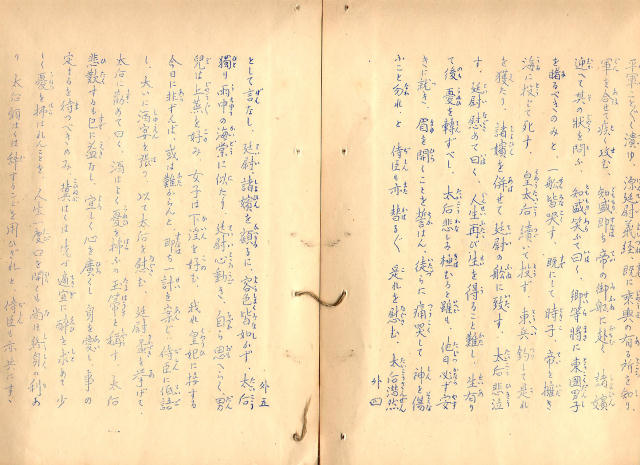 平軍く潰ゆ 源廷尉義經既に乘輿の有る所を知り
軍を合せて疾く攻む 知盛即ち帝の御船に赴く 諸嬪
迎へて其の状を問ふ、知盛笑ふて曰く、卿等將に東國男子
を睹るべきのみと、一船皆哭す 既にして時子、帝を擁き
海に投じて死す、皇太后續いて投ず 東兵釣して是れ
を獲たり、諸嬪を併せて廷尉の船に致す、太后悲泣
す、廷尉慰めて曰く、人生再び生を得ること難し、生有り
て後、憂を轉ずべし、太后悲み極むると雖も他日必ず安
きに就き、眉を開くことを誓はん、徒らに痛哭して神を傷
ふこと勿れ、と 侍臣も亦替るく是れを慰む、太后潸然
外四
外五
として言なし、廷尉諸嬪を顧るに容色皆如かず、太后
獨り雨中の海棠に似たり、廷尉心動き、自ら思へらく男
兒は上蒸を好み、女子は下淫を好む、我れ皇妃に接する
今日に非ずんば、或は難からんと、即ち一計を案じ侍臣に低語
し、大いに酒宴を張つ、以て太后を慰む 廷尉盃を擧げて
太后に勸めて曰く、酒はよく憂を掃ふの玉箒と稱す、太后
悲歎するも已に益なし、宜しく心を廣くし身を愛し事の
定まるを待つべきのみ 冀はくは 適宜に醉を求めて少
しく憂を掃はれんことを、人生 口を開くも尚ほ終身の利あ
り 太后願はくは辭することを用ひざれと 侍臣も亦共にすゝ